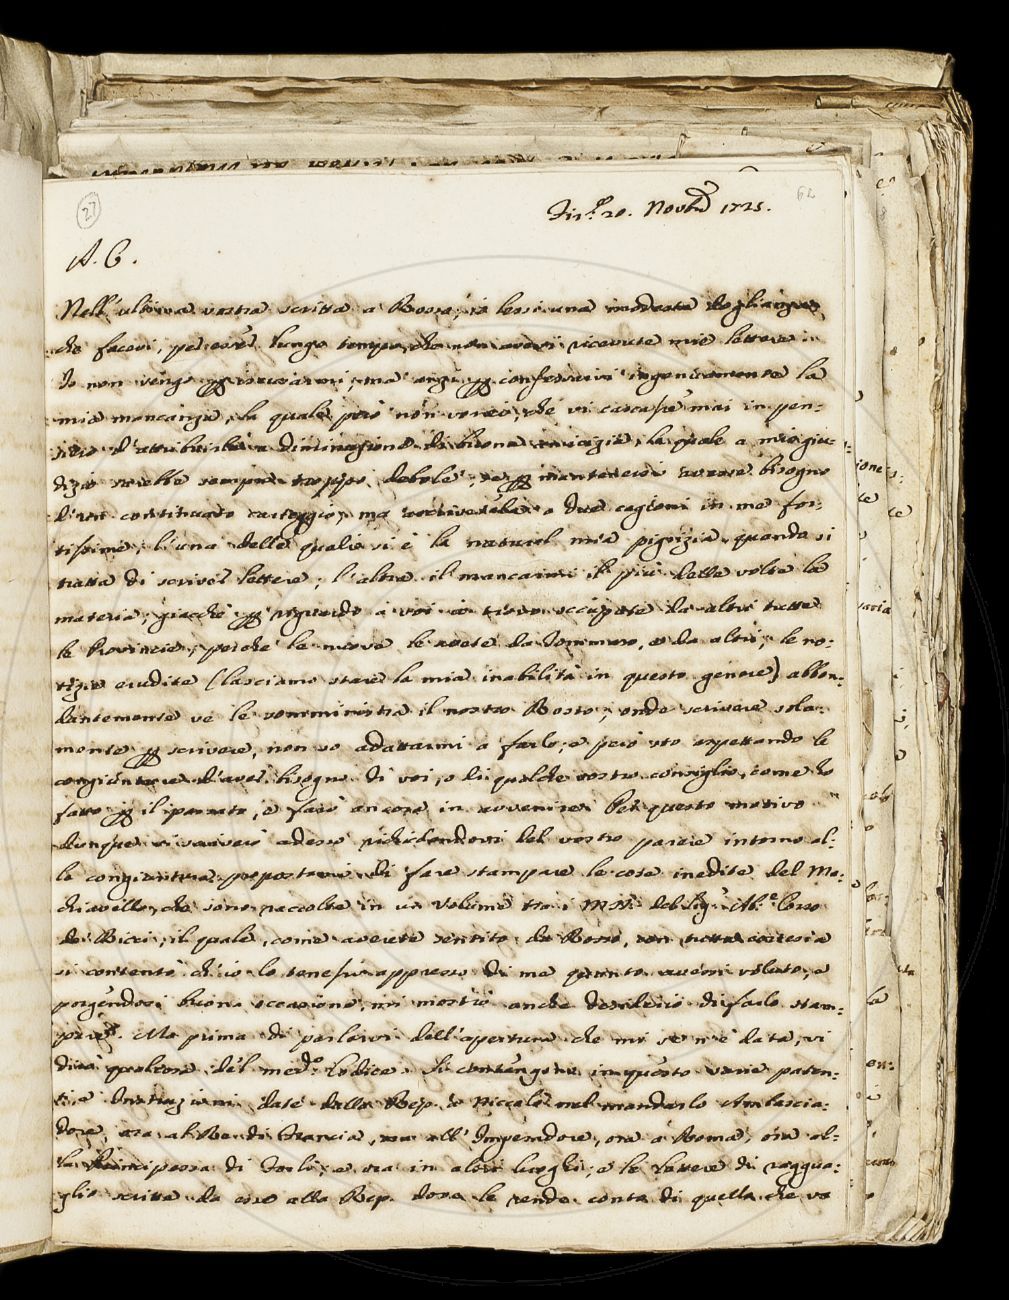 27
62
Fir.e 20. Novbre 1725.
A. C.
Nell' ultima vostra scritta a Bosso, io lessi una modesta doglianza
che facevi, per esser lungo tempo, che non avevi ricevute mie lettere.
Io non vengo per iscusarmi, ma anzi per confessarvi ingenuamente la
mia mancanza, la quale però non vorrei, che vi cascasse mai in pen-
siero d'attribuirla a diminuzione di buona amicizia, la quale a mio giu-
dizio sarebbe sempre troppo debole, se per mantenersi avesse bisogno
d'un continuato carteggio, ma a due cagioni in me for-
tissime, l'una delle quali si è la natural mia pigrizia, quando si
tratta di scriver lettere; l'altra il mancarmi il più delle volte la
materia; giacchè per riguardo a voi io trovo occupate da altri tutte
le Provincie, perchè le nuove le avete da Tommaso, e da altri; le no-
tizie erudite (lasciamo stare la mia inabilità in questo genere) abbon-
dantemente ve le somministra il nostro Bosso; onde scrivere sola-
mente per scrivere, non so adattarmi a farlo; e però sto aspettando le
congiunture d'aver bisogno di voi, o di qualche vostro consiglio, come ho
fatto per il passato, e farò ancora in avvenire. Per questo motivo
dunque vi scriverò adesso richiedendovi del vostro parere intorno al-
la congiuntura propostami di fare stampare le cose inedite del Ma-
chiavello, che sono raccolte in un Volume tra i MSS. del Sig. Ab.e Corso
de Ricci, il quale, come avrete sentito da Bosso, con tutta cortesia
si contentò ch'io lo tenessi appresso di me quanto avessi voluto, e
porgendosi buona occasione, mi mostrò anche desiderio di farlo stam-
pare. Ma prima di parlarvi dell'apertura che mi se n'è data, vi
dirò qualcosa del med.o Codice. Si contengono in questo varie paten-
ti, e Instruzioni date dalla Rep. a Niccolò nel mandarlo Ambascia-
dore, ora al Re di Francia, ora all'Imperadore, ora a Roma, ora al-
la Principessa di Forlì, e ora in altri luoghi; e le Lettere di raggua-
glio scritte da esso alla Rep. dove le rende conto di quello che va